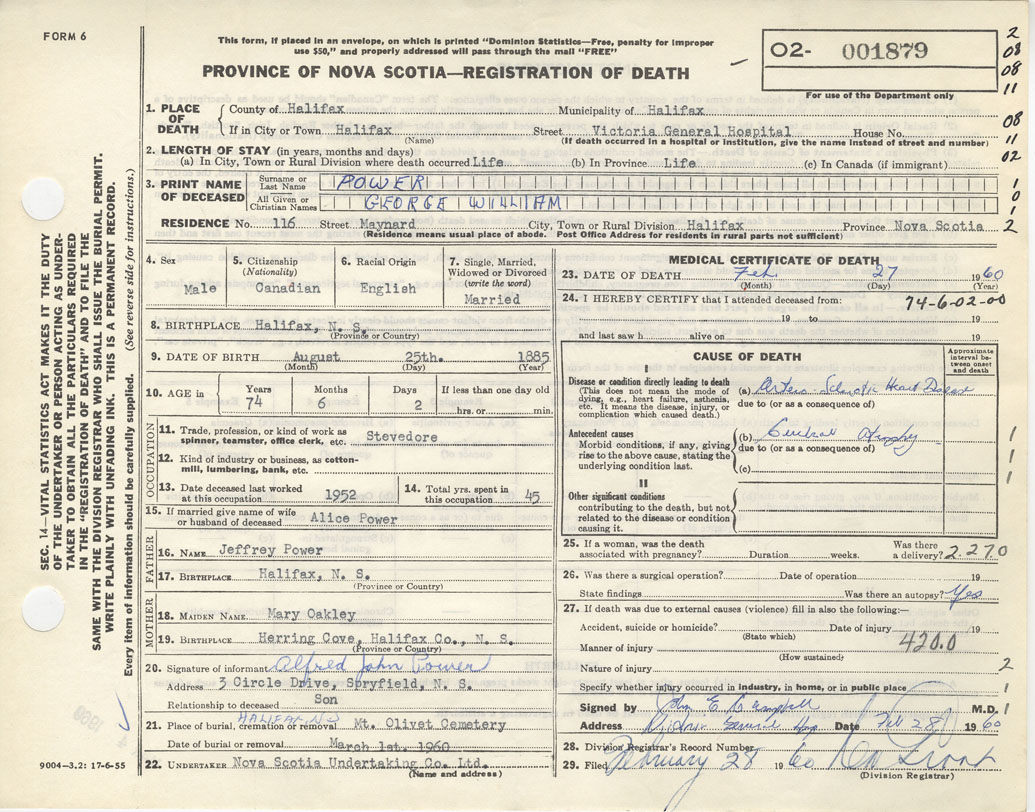 FORM 6
This form, if placed in an envelope, on which is printed "Dominion Statistics—Free, penalty for improper
use $50," and properly addressed will pass through the mail "FREE"
PROVINCE OF NOVA SCOTIA—REGISTRATION OF DEATH
02- 001879
For use of the Department only
2
08
08
11
08
11
02
1
0
1
2
1. PLACE OF DEATH
County of Halifax Municipality of Halifax
If in City or Town Halifax Street Victoria General Hospital House No.
(Name) (If death occurred in a hospital or institution, give the name instead of street and number)
2. LENGTH OF STAY (in years, months and days)
(a) In City, Town or Rural Division where death occurred Life (b) In Province Life (c) In Canada (if immigrant)
3. PRINT NAME OF DECEASED
Surname or Last Name POWER
All Given or Christian Names GEORGE WILLIAM
RESIDENCE No. 116 Street Maynard City, Town or Rural Division Halifax Province Nova Scotia
(Residence means usual place of abode. Post Office Address for residents in rural parts not sufficient)
4. Sex
Male
5. Citizenship
(Nationality)
Canadian
6. Racial Origin
English
7. Single, Married,
Widowed or Divorced
(write the word)
Married
8. BIRTHPLACE Halifax, N. S.
(Province or Country)
9. DATE OF BIRTH August 25th. 1885
(Month) (Day) (Year)
10. AGE in
Years Months Days If less than one day old
74 6 2 hrs. or min.
OCCUPATION
11. Trade, profession, or kind of work as
spinner, teamster, office clerk, etc. Stevedore
12. Kind of industry or business, as cotton-
mill, lumbering, bank, etc.
13. Date deceased last worked
at this occupation 1952
14. Total yrs. spent in
this occupation 45
15. If married give name of wife
or husband of deceased Alice Power
FATHER
16. NAME Jeffrey Power
17. BIRTHPLACE Halifax, N. S.
(Province or Country)
MOTHER
18. MAIDEN NAME Mary Oakley
19. BIRTHPLACE Herring Cove, Halifax Co., N. S.
(Province or Country)
20. Signature of informant Alfred John Power
Address 3 Circle Drive, Spryfield, N. S.
Relationship to deceased Son
HALIFAX N.S.
21. Place of burial, cremation or removal Mt. Olivet Cemetery
Date of burial or removal March 1st. 1960
22. UNDERTAKER Nova Scotia Undertaking Co. Ltd.
(Name and address)
MEDICAL CERTIFICATE OF DEATH
23. DATE OF DEATH Feb 27 1960
(Month) (Day) (Year)
24. I HEREBY CERTIFY that I attended deceased from:
74-6-02-00
19 to 19
and last saw h alive on 19
CAUSE OF DEATH
Approximate
interval be-
tween onset
and death
I
Disease or condition directly leading to death
(This does not mean the mode of
dying, e.g., heart failure, asthenia,
etc. It means the disease, injury, or
complication which caused death.)
(a) Arterio Sclerotic Heart Disease
due to (or as a consequence of)
Antecedent causes
Morbid conditions, if any, giving
rise to the above cause, stating the
underlying condition last.
(b) Cerebral Atrophy
due to (or as a consequence of)
(c)
1
1
1
II
Other significant conditions
contributing to the death, but not
related to the disease or condition
causing it.
25. If a woman, was the death
associated with pregnancy? Duration weeks. Was there
a delivery? 2.270
26. Was there a surgical operation? Date of operation 19
State findings Was there an autopsy? Yes
27. If death was due to external causes (violence) fill in also the following:—
Accident, suicide or homicide? Date of injury 19
(State which)
Manner of injury 420.0
(How sustained)
Nature of injury
2
Specify whether injury occurred in industry, in home, or in public place
1
Signed by John E Campbell M.D.
1
Address Victoria General Hosp Date Feb 28 1960
28. Division Registrar's Record Number
29. Filed February 28 1960
(Division Registrar)
SEC. 14—VITAL STATISTICS ACT MAKES IT THE DUTY
OF THE UNDERTAKER OR PERSON ACTING AS UNDER-
TAKER TO OBTAIN ALL THE PARTICULARS REQUIRED
IN THE "REGISTRATION OF DEATH" AND TO FILE THE
SAME WITH THE DIVISION REGISTRAR WHO SHALL ISSUE THE BURIAL PERMIT.
WRITE PLAINLY WITH UNFADING INK. THIS IS A PERMANENT RECORD.
Every item of information should be carefully supplied. (See reverse side for instructions.)
9004—3.2: 17-6-55